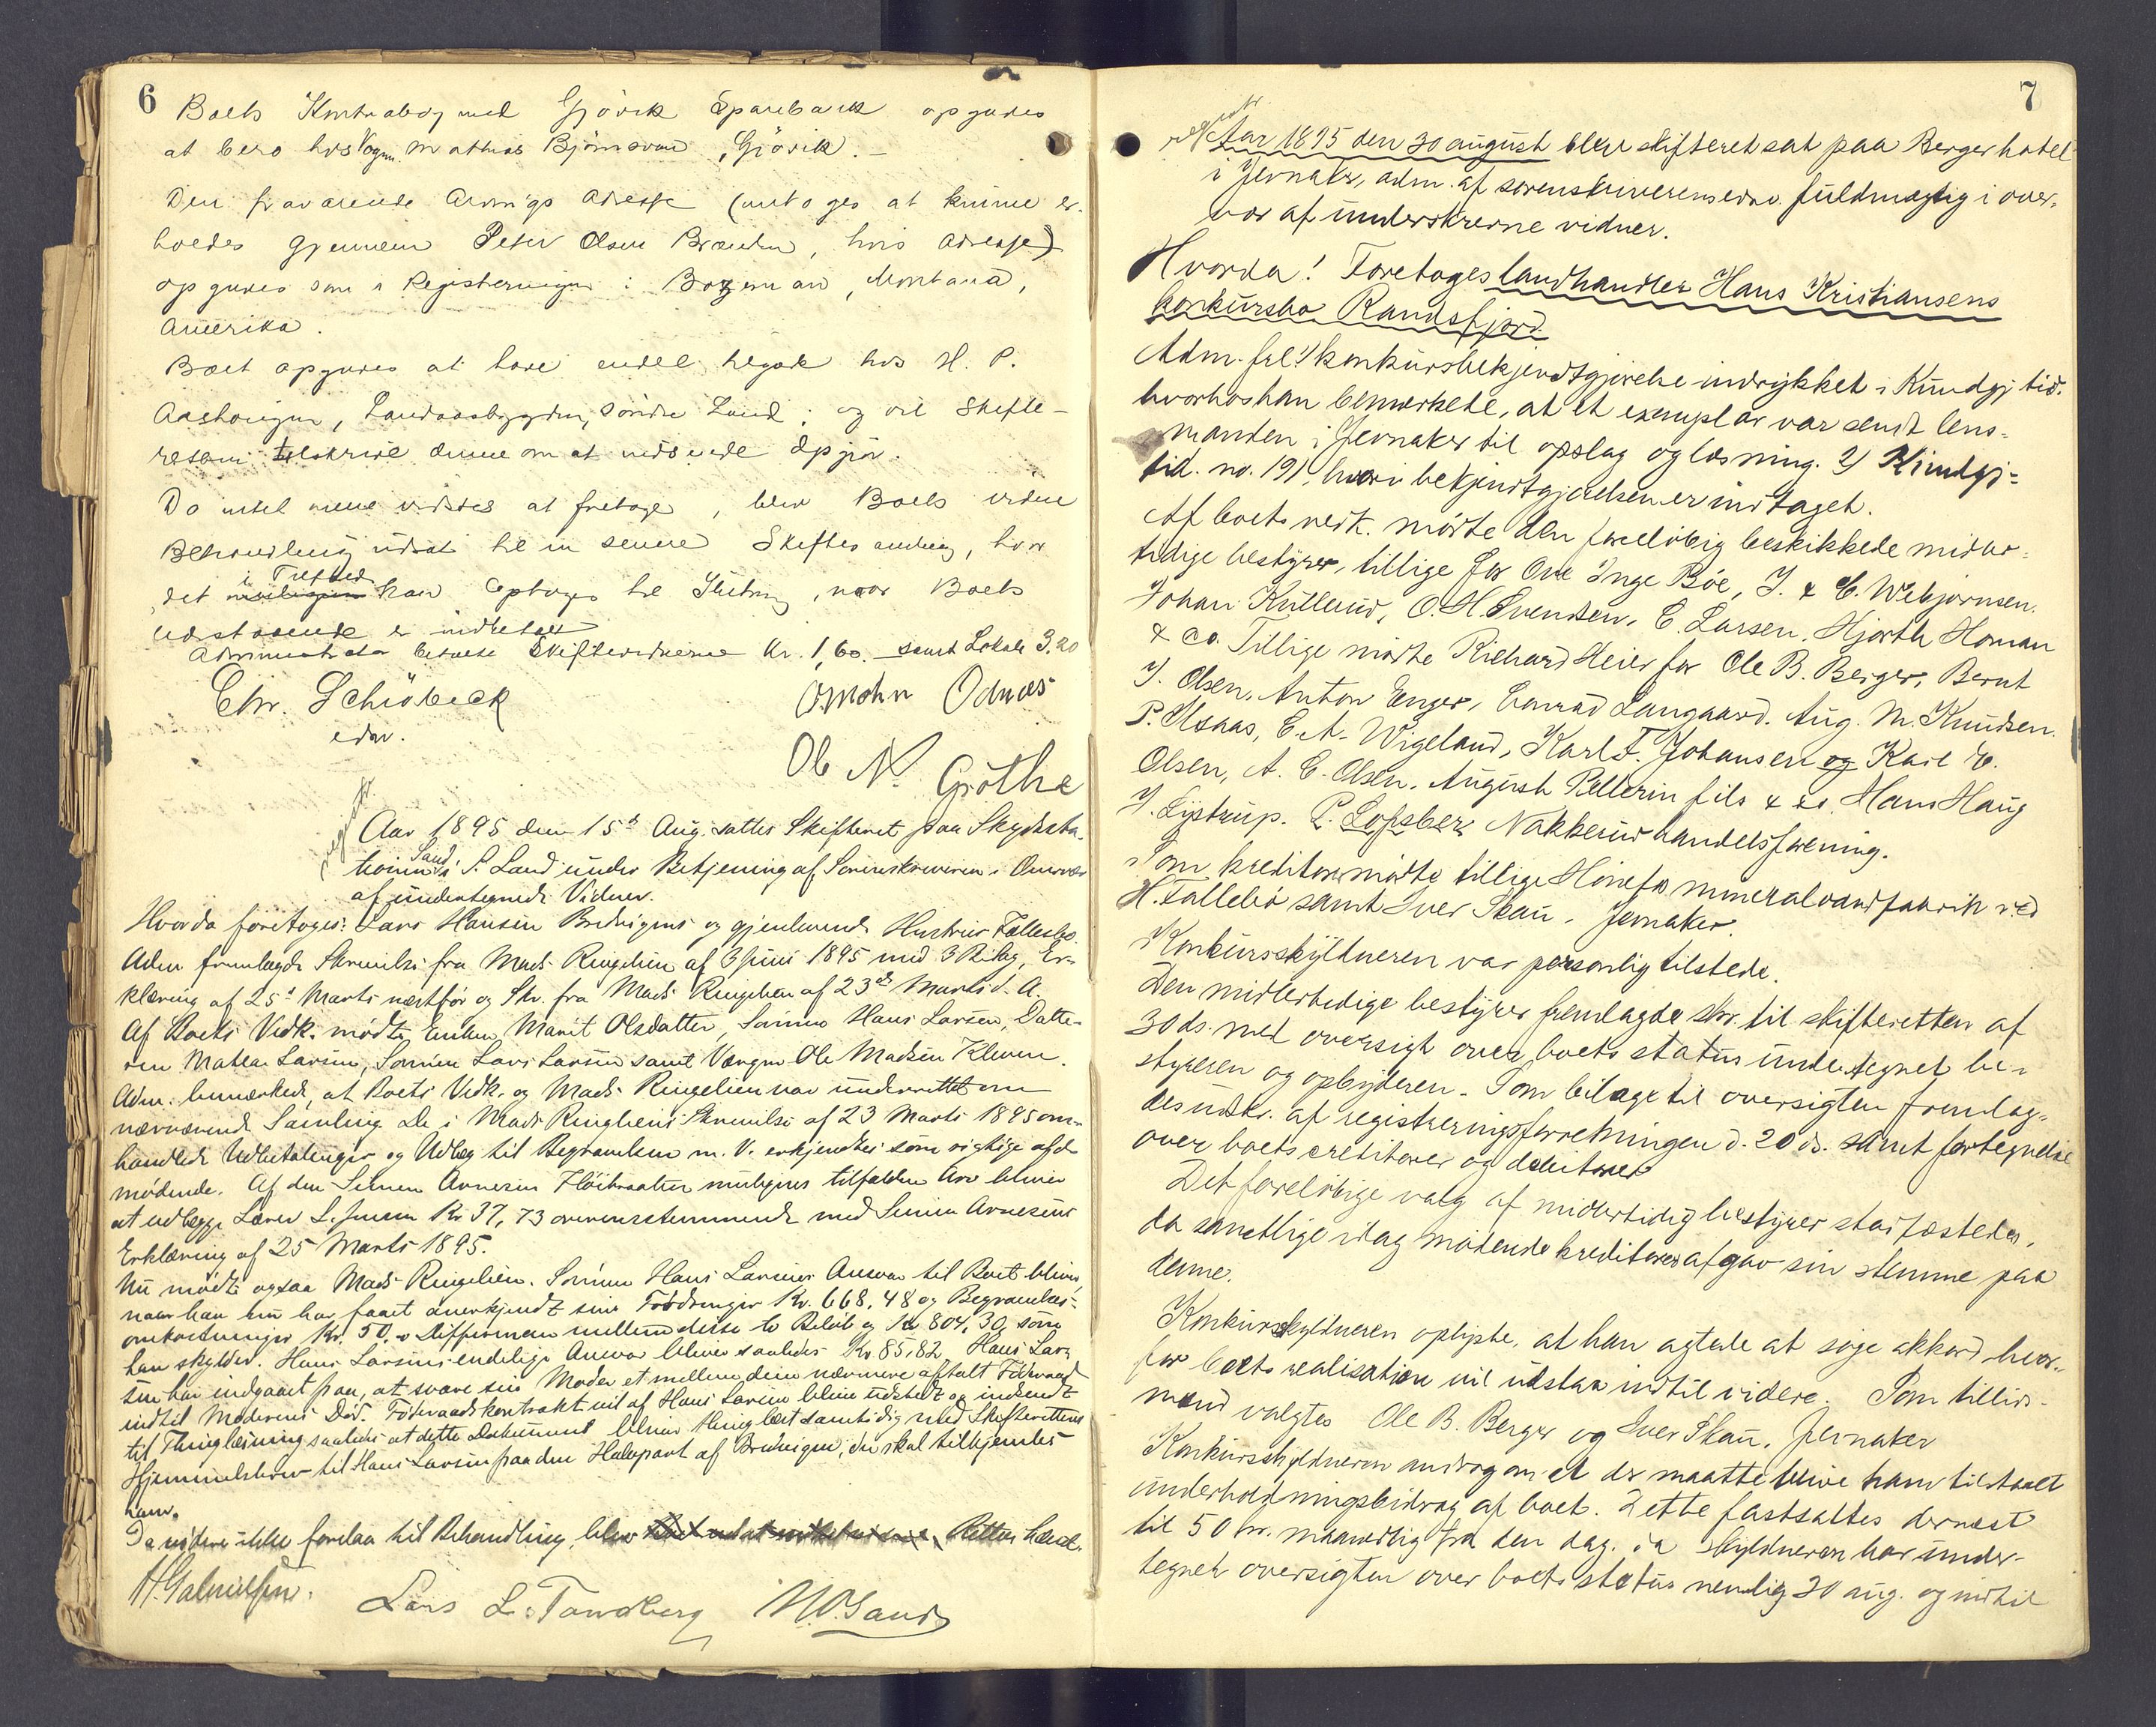 6
Boets Kontrabog med Gjøvik Sparebank opgaves
at bero hos Vognm. Mathias Bjørnsveen, Gjøvik. –
Den fraværende Arvings Adresse (antoges at kunne er-
holdes gjennem Peter Olsen Brænden, hvis Adresse)
opgaves som i Registreringen: Bozeman, Montana,
Amerika.
Boet opgaves at have endel tilgode hos H. P.
Aashaugen, Landaasbygden, Søndre Land; og vil Skifte-
retten tilskrive denne om at indsende Opgjør.
Da intet mere vidstes at foretage, blev Boets videre
Behandling udsat til en senere Skiftesamling, hvor
det i Tilfælde kan optages til Slutning, naar Boets
Udestaaende er indbetalt
Administrator betalte Skiftevidnerne Kr. 1,60. – samt Lokale 3.20
Chr. Schiøbeck
edsv.
O. Mohn Odnæs
Ole N. Gröthe
Aar 1895 den 15de Aug. sattes Skifteret paa Skydssta-
tionen Sand i S. Land under Betjening af Sorenskriveren i Overvær
af undertegnede Vidner.
Hvorda foretoges: Lars Hansen Bredvigens og gjenlevende Hustrus Fællesbo.
Adm. fremlagde Skrivelse fra Mads Ringelien af 3 Juni 1895 med 3 Bilag, Er-
klæring af 25de Marts næstfør og Skr. fra Mads Ringelien af 23de Marts d. A.
Af Boets Vedk. mødte Enken Marit Olsdatter, Sønnen Hans Larsen, Datte-
ren Mathea Larsen, Sønnen Lars Larsen samt Værgen Ole Madsen Kleven.
Adm. bemærkede, at Boets Vedk. og Mads Ringelien var underrettet om
nærværende Samling. De i Mads Ringliens Skrivelse af 23 Marts 1895 om-
handlede Udbetalinger og Udlæg til Begravelsen m. V. erkjendtes som rigtige af de
mødende. Af den Simen Arnesen Høibraaten muligens tilfalden Arv bliver
at udlægge Lærer L. Jensen Kr 37,73 overensstemmende med Simen Arnesens
Erklæring af 25 Marts 1895.
Nu mødte ogsaa Mads Ringelien. Sønnen Hans Larsens Ansvar til Boet bliver,
naar han nu har faaet anerkjendt sine Fordringer Kr. 668,48 og Begravelses-
omkostninger Kr. 50.– Differencen mellem disse to Beløb og Kr 804,30, som
han skylder. Hans Larsens endelige Ansvar bliver saaledes Kr 85,82. Hans Lar-
sen har indgaaet paa, at svare sin Moder et mellem dem nærmere aftalt Føderaad
indtil Moderens Død. Føderaadskontrakt vil af Hans Larsen blive udstedt og indsendt
til Thinglæsning saaledes at dette Dokument bliver thinglæst samtidig med Skifterettens
Hjemmelsbrev til Hans Larsen paa den Halvpart af Bredvigen, der skal tilkjendes
ham.
Da videre ikke forelaa til Behandling, blev Retten hævet.
H. Gabrielsen.
Lars L. Tandberg
N. O. Sand
7
Aar 1895 den 30 august blev skifteret sat paa Berger hotel
i Jevnaker, adm. af sorenskriverens edsv. fuldmægtig i over-
vær af underskrevne vidner.
Hvorda! Foretoges landhandler Hans Kristiansens
konkursbo Randsfjord
Adm. frl. 1) konkursbekjendtgjørelse indrykket i Kundgj. tid.
hvorhos han bemærkede, at et exemplar var sendt lens-
manden i Jevnaker til opslag og læsning. 2) Kundgj-
tid. no. 191, hvori bekjendtgjørelsen er indtaget.
Af boets vedk. mødte den foreløbig beskikkede midler-
tidige bestyrer, tillige for Ove Inge Bøe, J. & C. Webjørnsen.
Johan Kulleud, O. H. Svendsen, C. Larsen. Hjorth Homan
& co. Tillige mødte Richard Heier for Ole B. Berger, Bernt
J. Olsen, Anton Enger, Conrad Langaard. Aug. M. Knudsen.
P. Elsaas, C. A. Wigeland, Karl F. Johansen og Karl E.
Olsen, A. C. Olsen. August Pellerin fils & co. Hans Haug
J. Lystrup. P. Lofsberg Nakkerud handelsforening.
Som kreditorer mødte tillige Hønefos mineralvandfabrik ved
H. Fallebø samt Iver Skau, Jevnaker.
Konkursskyldneren var personlig tilstede.
Den midlertidige bestyrer fremlagde skr. til skifteretten af
30 ds. med oversigt over boets status undertegnet be-
styreren og opbyderen. Som bilage til oversigten fremlag-
des udsk. af registreringsforretningen d. 20 ds. samt fortegnelse
over boets creditorer og debitorer
Det foreløbige valg af midlertidig bestyrer stadfæstedes,
da samtlige idag mødende kreditorer afgav sin stemme paa
denne.
Konkursskyldneren oplyste, at han agtede at søge akkord hvor-
for boets realisation vil udstaa indtil videre. Som tillids-
mænd valgtes Ole B. Berger og Iver Skau, Jevnaker
Konkursskyldneren androg om at der maatte blive ham tilstaaet
underholdningsbidrag af boet. Dette fastsattes dernæst
til 50 kr. maanedlig fra den dag, da skyldneren har under-
tegnet oversigten over boets status nemlig 30 aug. og indtil